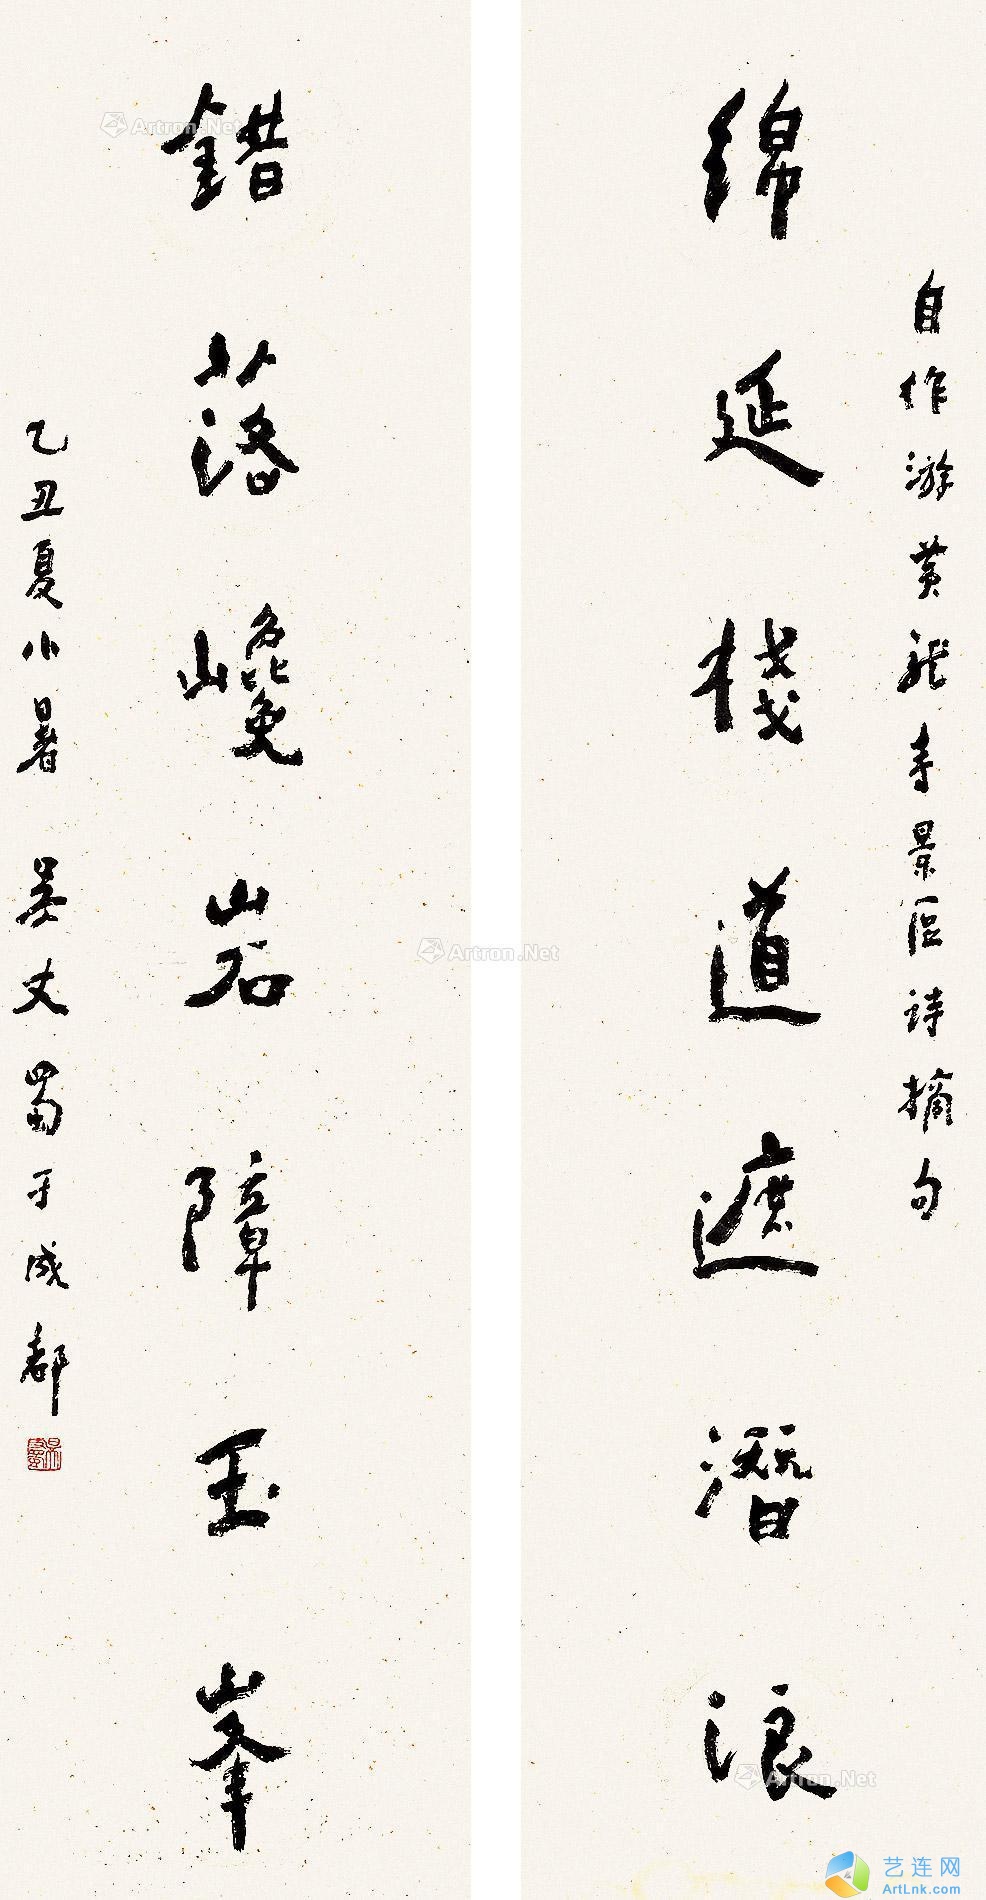 自作游黄龙寺景区诗摘句
绵延栈道遮潜浪
錯落巉岩障玉峯
乙丑夏小暑 吴丈蜀于成都
Artron.Net
Artron.Net
Artron.Net
艺连网
ArtLnk.com